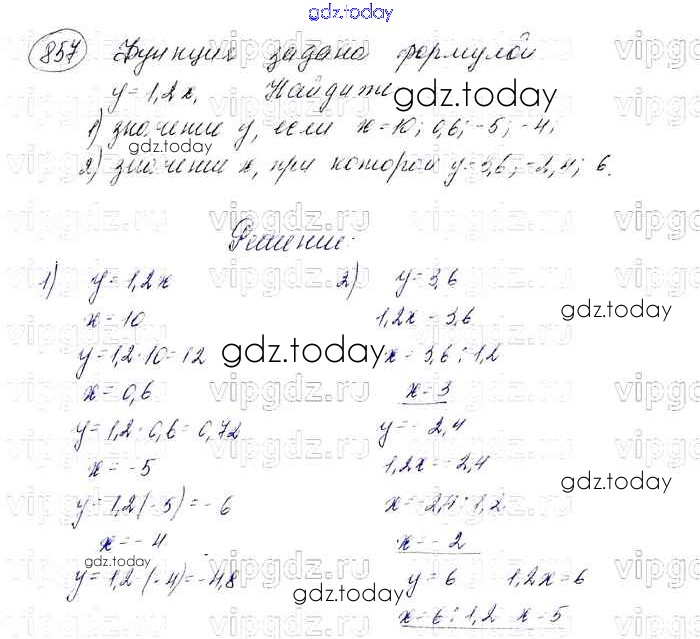 gdz.today
857 Функция задана формулой
y = 1,2x. Найдите
gdz.today
1) значение y, если x = 10; 0,6; -5; -4;
gdz.today
2) значение x, при котором y = 3,6; -2,4; 6.
Решение.
1) y = 1,2x
x = 10
y = 1,2 · 10 = 12
x = 0,6
y = 1,2 · 0,6 = 0,72
x = -5
y = 1,2 (-5) = -6
x = -4
y = 1,2 · (-4) = -4,8
2) y = 3,6
1,2x = 3,6
x = 3,6 : 1,2
x = 3
y = -2,4
1,2x = -2,4
x = -2,4 : 1,2
x = -2
y = 6 1,2x = 6
x = 6 : 1,2 x = 5
gdz.today
gdz.today
gdz.today
gdz.today
gdz.today
vipgdz.ru